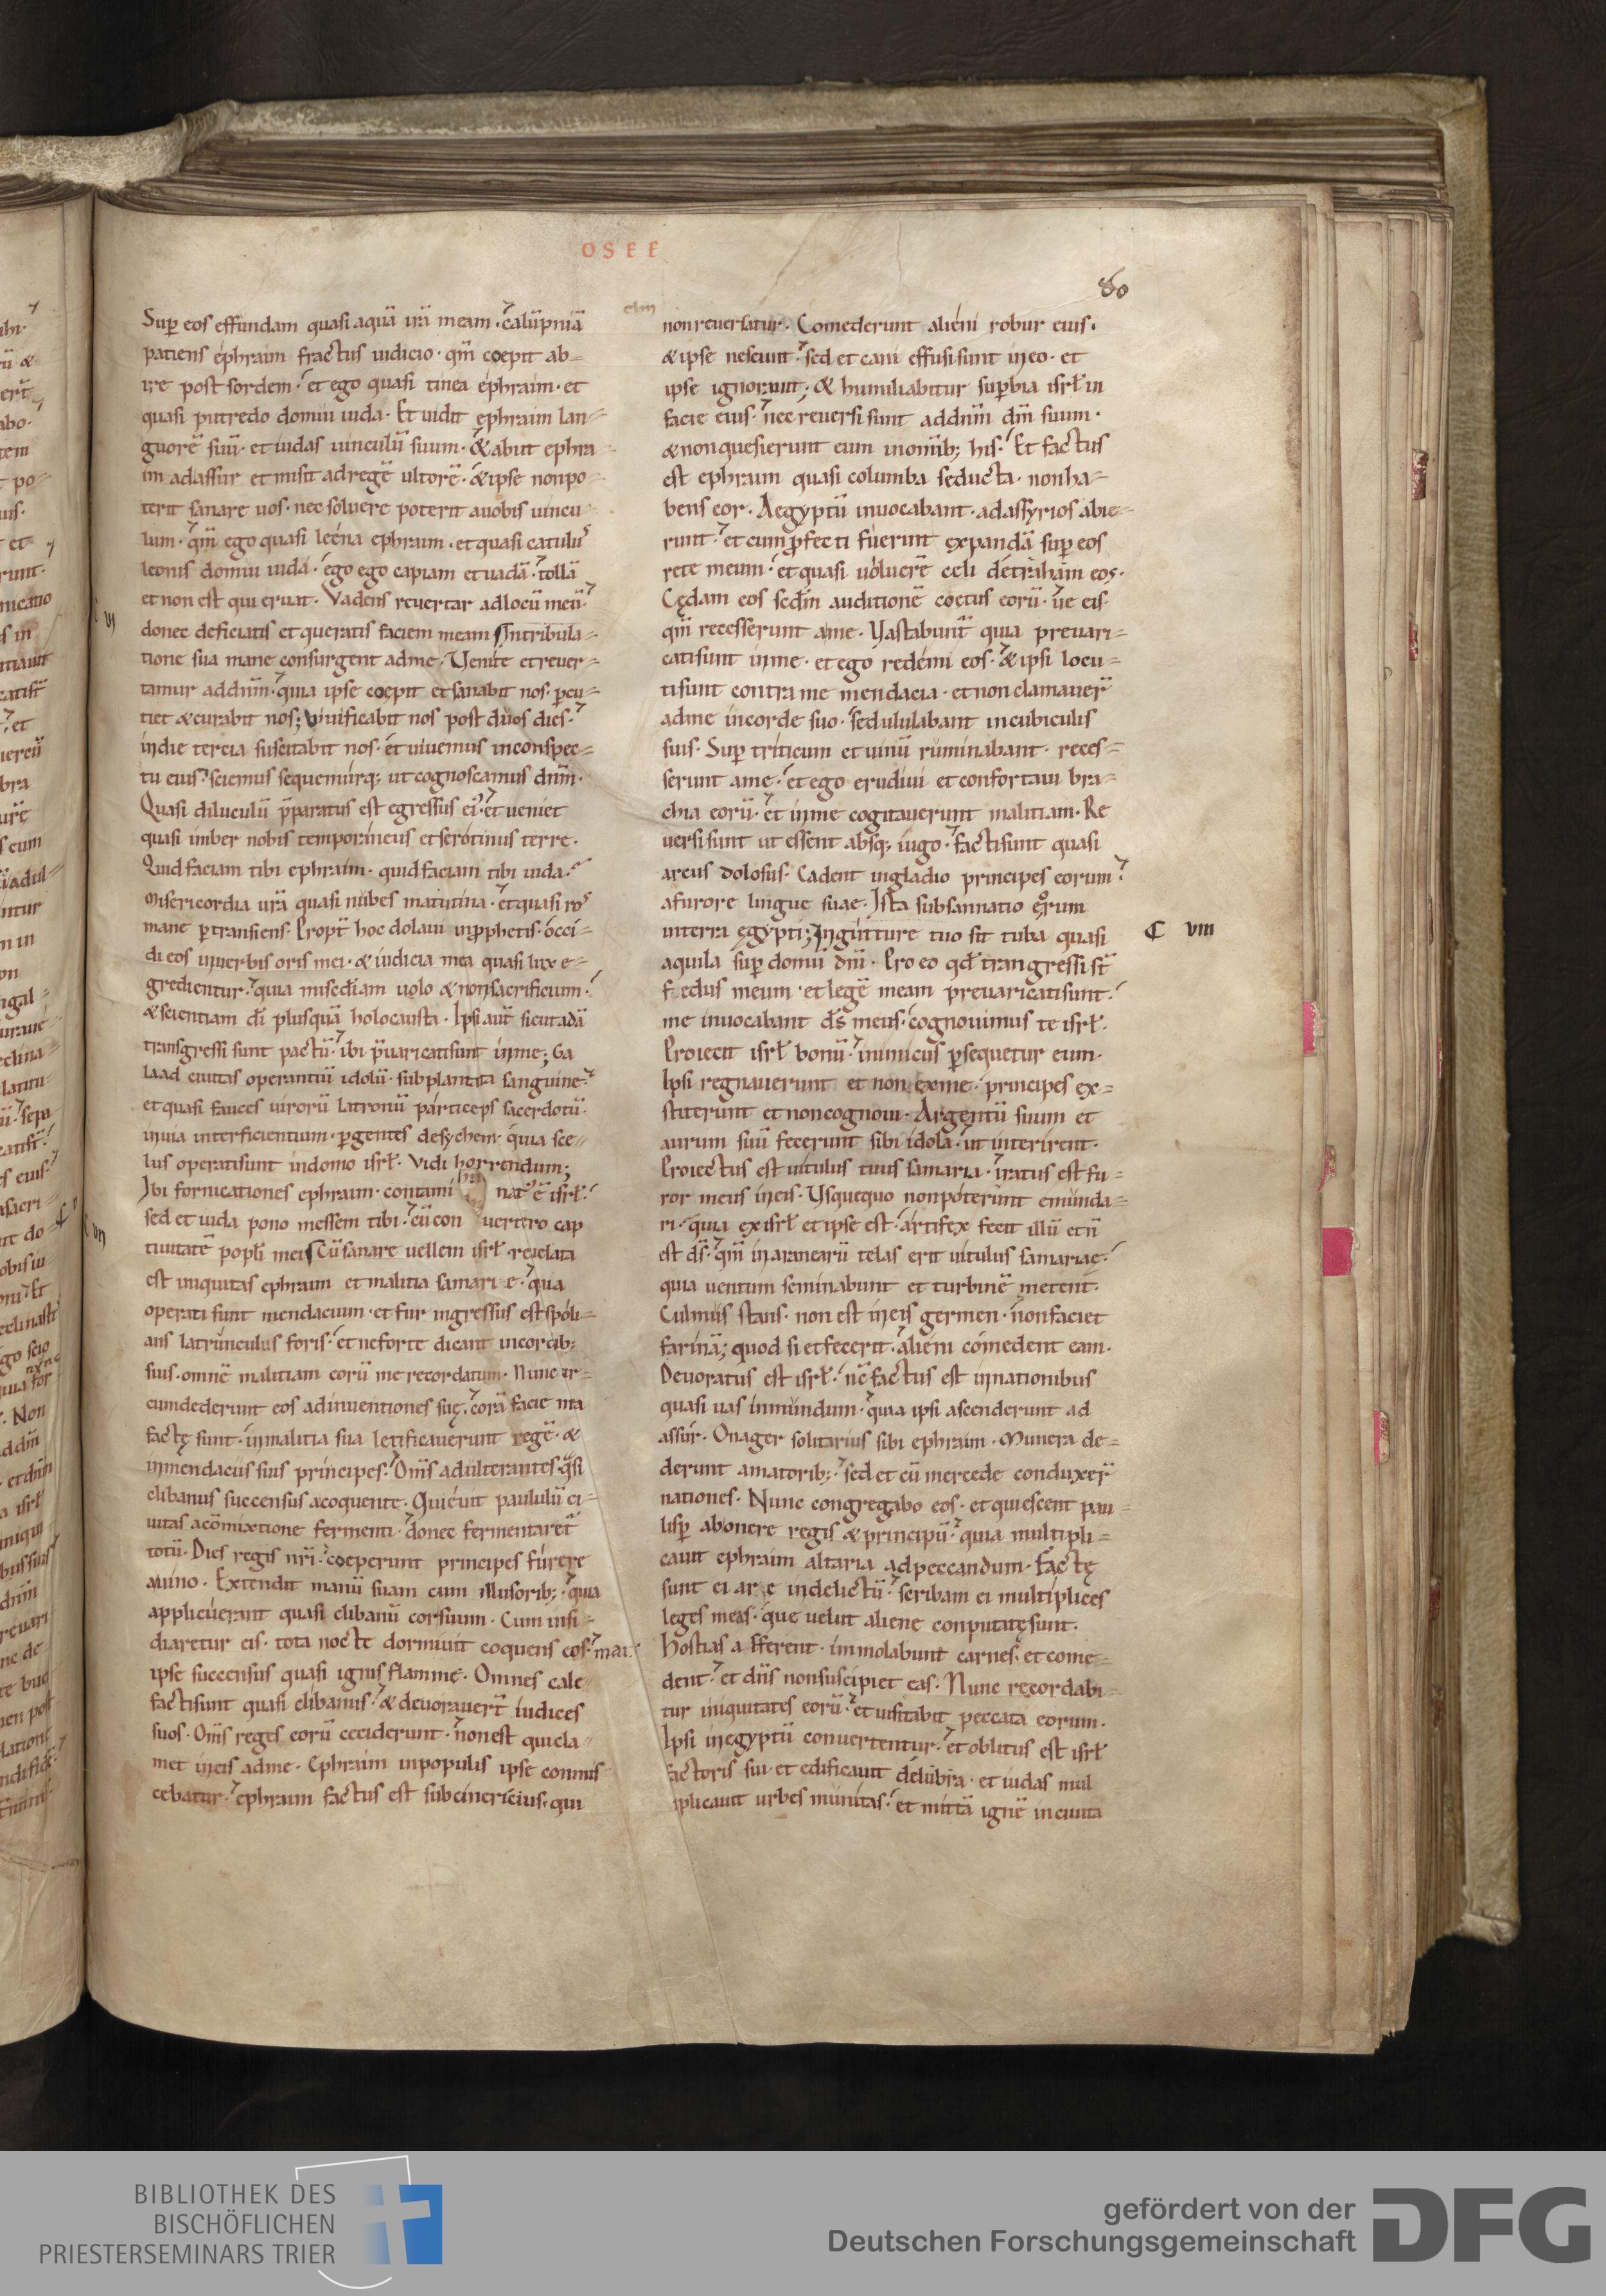 OSEE
80
Sup eos effundam quasi aquā irā meam· calūpniā
patiens ephraim fractus iudicio· qm̄ coepit ab-
ire post sordem· et ego quasi tinea ephraim· et
quasi putredo domui iuda· Et uidit ephraim lan-
guorē suū· et iudas uinculū suum· & abiit ephra
im ad assur et misit ad regē ultorē· & ipse non po-
terit sanare uos· nec soluere poterit a uobis uincu-
lum· qm̄ ego quasi leena ephraim· et quasi catulus
leonis domui iuda· ego ego capiam et uadā· tollā
et non est qui eruat· Vadens reuertar ad locū meū·
donec deficiatis et queratis faciem meam In tribula-
tione sua mane consurgent ad me· Venite et reuer-
tamur ad dnm̄· quia ipse coepit et sanabit nos· pcu-
tiet & curabit nos; Viuificabit nos post duos dies·
in die tercia suscitabit nos· et uiuemus in conspec-
tu eius· sciemus sequemurq; ut cognoscamus dnm̄·
Quasi diluculū p̄paratus est egressus ei· et ueniet
quasi imber nobis temporaneus et serotinus terre·
Quid faciam tibi ephraim· quid faciam tibi iuda·
Misericordia urā quasi nubes matutina· et quasi ros
mane ptransiens· Propt̄ hoc dolaui in pphetis· occi-
di eos in uerbis oris mei· & iudicia mea quasi lux e-
gredientur· quia miscdiam uolo & non sacrificium·
& scientiam di plusquā holocausta· Ipsi aut̄ sicut adā
transgressi sunt pactū· ibi p̄uaricati sunt in me; Ga
laad ciuitas operantiū idolū· subplantata sanguine·
et quasi fauces uirorū latronū particeps sacerdotū·
in uia interficientium· pgentes de sychem· quia sce-
lus operati sunt in domo isrl̄· Vidi horrendum;
Ibi fornicationes ephraim· contami nat' ē isrl̄·
sed et iuda pono messem tibi· cū con uertero cap
tiuitatē popl̄i mei Cū sanare uellem isrl̄ reuelata
est iniquitas ephraim et malitia samarie· quia
operati sunt mendacium· et fur ingressus est spoli-
ans latrunculus foris· et ne forte dicant in cordib;
suis· omnē malitiam eorū me recordatum· Nunc cir-
cumdederunt eos adinuentiones suę· corā facie mea
factę sunt· in malitia sua letificauerunt regē· &
in mendaciis suis principes· Om̄s adulterantes qsi
clibanus succensus a coquente· Quieuit paululū ci-
uitas a cōmixtione fermenti· donec fermentaret̄
totū· Dies regis nr̄i· coeperunt principes furere
a uino· Extendit manū suam cum illusorib;· quia
applicuerunt quasi clibanū cor suum· Cum insi-
diaretur eis· tota nocte dormiuit coquens eos· mane
ipse succensus quasi ignis flamme· Omnes cale-
facti sunt quasi clibanus· & deuorauert̄ iudices
suos· Om̄s reges eorū ceciderunt· non est qui cla-
met in eis ad me· Ephraim in populis ipse commis-
cebatur· ephraim factus est subcinericius· qui
non reuersatur· Comederunt alieni robur eius·
& ipse nesciuit· sed et cani effusi sunt in eo· et
ipse ignorauit; & humiliabitur supbia isrl̄ in
facie eius· nec reuersi sunt ad dnm̄ dm̄ suum·
& non quesierunt eum in omib; his· Et factus
est ephraim quasi columba seducta· non ha-
bens cor· Aegyptū inuocabant· ad assyrios abie-
runt· et cum pfecti fuerunt expandā sup eos
rete meum· et quasi uolucrē celi detraham eos·
Cędam eos scdm auditionē coetus eorū· ue eis·
qm̄ recesserunt a me· Vastabunt̄ quia preuari-
cati sunt in me· et ego redemi eos· & ipsi locu-
ti sunt contra me mendacia· et non clamauer̄
ad me in corde suo· sed ululabant in cubiculis
suis· Sup triticum et uinū ruminabant· reces-
serunt a me· et ego erudiui et confortaui bra-
chia eorū· et in me cogitauerunt malitiam· Re
uersi sunt ut essent absq; iugo· facti sunt quasi
arcus dolosus· Cadent in gladio principes eorum·
a furore lingue suae· Ista subsannatio eorum
in terra ęgypti; In gutture tuo sit tuba quasi
C VIII
aquila sup domū dn̄i· Pro eo qd̄ trangressi st̄
fedus meum· et legē meam preuaricati sunt·
me inuocabant ds̄ meus· cognouimus te isrl̄·
Proiecit isrl̄ bonū· inimicus psequetur eum·
Ipsi regnauerunt et non ex me· principes ex-
stiterunt et non cognoui· Argentū suum et
aurum suū fecerunt sibi idola· ut interirent·
Proiectus est uitulus tuus samaria· iratus est fu-
ror meus in eis· Vsquequo non poterunt emunda-
ri· quia ex isrl̄ et ipse est· artifex fecit illū et n̄
est ds̄· qm̄ in aranearū telas erit uitulus samariae·
quia uentum seminabunt et turbinē metent·
Culmus stans· non est in eis germen· non faciet
farinā; quod si et fecerit· alieni comedent eam·
Deuoratus est isrl̄· nc̄ factus est in nationibus
quasi uas inmundum· quia ipsi ascenderunt ad
assur· Onager solitarius sibi ephraim· Munera de-
derunt amatorib;· sed et cū mercede conduxer̄
nationes· Nunc congregabo eos· et quiescent pau-
lisp ab onere regis & principū· quia multipli-
cauit ephraim altaria ad peccandum· Factę
sunt ei are in delictū· scribam ei multiplices
leges meas· que uelut aliene conputatę sunt·
Hostias afferent· immolabunt carnes· et come-
dent· et dn̄s non suscipiet eas· Nunc recordabi-
tur iniquitates eorū· et uisitabit peccata eorum·
Ipsi in egyptū conuertentur· et oblitus est isrl̄
factoris sui· et edificauit delubra· et iudas mul
tiplicauit urbes munitas· et mittā ignē in ciuita
BIBLIOTHEK DES
BISCHÖFLICHEN
PRIESTERSEMINARS TRIER
gefördert von der
Deutschen Forschungsgemeinschaft
DFG